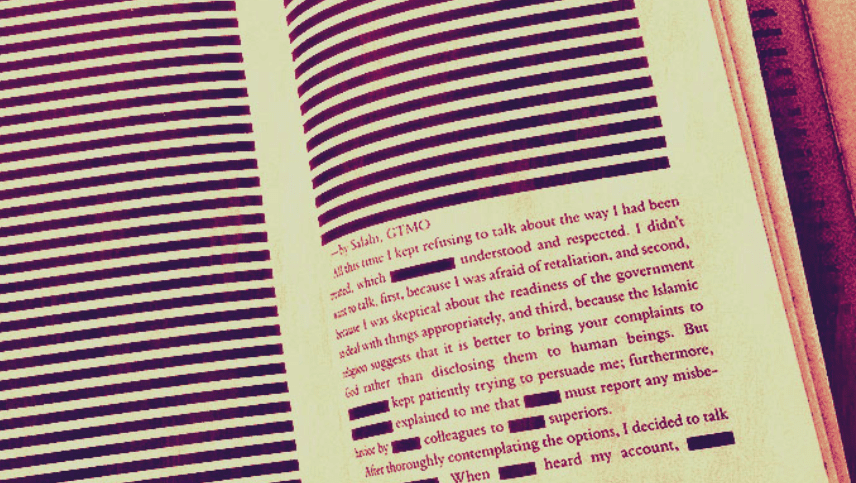 —by Salahi, GTMO
All this time I kept refusing to talk about the way I had been
treated, which understood and respected. I didn't
want to talk, first, because I was afraid of retaliation, and second,
because I was skeptical about the readiness of the government
to deal with things appropriately, and third, because the Islamic
religion suggests that it is better to bring your complaints to
God rather than disclosing them to human beings. But
kept patiently trying to persuade me; furthermore,
explained to me that must report any misbe-
havior by colleagues to superiors.
After thoroughly contemplating the options, I decided to talk
When heard my account,